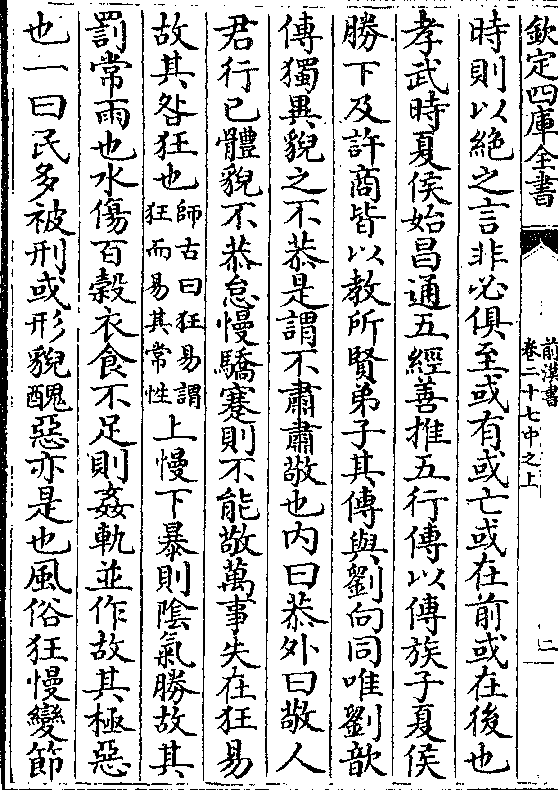 欽定四庫全書
前漢書
卷二十七中之上
二
時則以絶之言非必俱至或有或亡或在前或在後也
孝武時夏侯始昌通五經善推五行傳以傳族子夏侯
勝下及許商皆以教所賢弟子其傳與劉向同唯劉歆
傳獨異貌之不恭是謂不肅肅敬也内曰恭外曰敬人
君行已體貌不恭怠慢驕蹇則不能敬萬事失在狂易
故其咎狂也師古曰狂易謂狂而易其常性上慢下暴則陰氣勝故其
罰常雨也水傷百穀衣食不足則姦軌並作故其極惡
也一曰民多被刑或形貌醜惡亦是也風俗狂慢變節